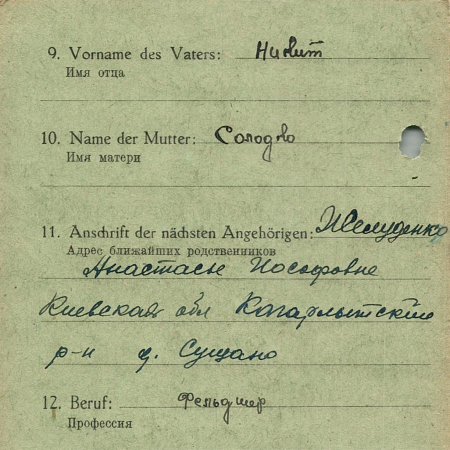 9. Vorname des Vaters: Никит
Имя отца
10. Name der Mutter: Солодво
Имя матери
11. Anschrift der nächsten Angehörigen: Желуденко
Адрес ближайших родственников
Анастасье Иосифовне
Киевская обл Кагарлытский
р-н д. Сущано
12. Beruf: Фельдшер
Профессия